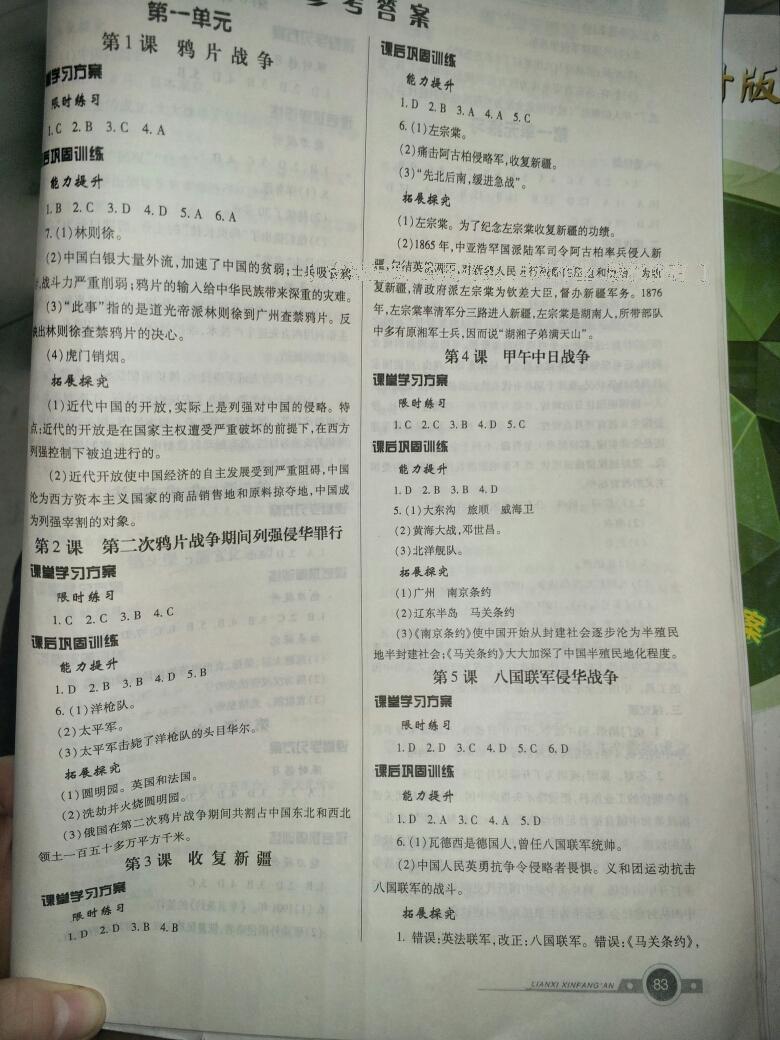 参考答案
第一单元
第1课 鸦片战争
堂学习方案
限时练习
1.C 2.B 3.C 4.A
后巩固训练
能力提升
1.B 2.C 3.D 4.D 5.A 6.A
7.(1)林则徐。
(2)中国白银大量外流,加速了中国的贫弱;士兵吸食鸦
,战斗力严重削弱;鸦片的输入给中华民族带来深重的灾难。
(3)“此事”指的是道光帝派林则徐到广州查禁鸦片。反
映出林则徐查禁鸦片的决心。
(4)虎门销烟。
拓展探究
(1)近代中国的开放,实际上是列强对中国的侵略。特
点:近代的开放是在国家主权遭受严重破坏的前提下,在西方
列强控制下被迫进行的。
(2)近代开放使中国经济的自主发展受到严重阻碍,中国
沦为西方资本主义国家的商品销售地和原料掠夺地,中国成
为列强宰割的对象。
第2课 第二次鸦片战争期间列强侵华罪行
课堂学习方案
限时练习
1.C 2.C 3.B 4.C
课后巩固训练
能力提升
1.D 2.B 3.B 4.D 5.B
6.(1)洋枪队。
(2)太平军。
(3)太平军击毙了洋枪队的头目华尔。
拓展探究
(1)圆明园。英国和法国。
(2)洗劫并火烧圆明园。
(3)俄国在第二次鸦片战争期间共割占中国东北和西北
领土一百五十多万平方千米。
第3课 收复新疆
课堂学习方案
限时练习
1.D 2.D 3.B 4.B
课后巩固训练
能力提升
1.D 2.B 3.A 4.A 5.C
6.(1)左宗棠。
(2)痛击阿古柏侵略军,收复新疆。
(3)“先北后南,缓进急战”。
拓展探究
(1)左宗棠。为了纪念左宗棠收复新疆的功绩。
(2)1865年,中亚浩罕国派陆军司令阿古柏率兵侵入新
疆,勾结英俄两国,对新疆人民进行残酷 为收
复新疆,清政府派左宗棠为钦差大臣,督办新疆军务。1876
年,左宗棠率清军分三路进入新疆,左宗棠是湖南人,所带部队
中多有原湘军士兵,因而说“湖湘子弟满天山”。
第4课 甲午中日战争
课堂学习方案
限时练习
1.C 2.C 3.B 4.D 5.C
课后巩固训练
能力提升
1.D 2.B 3.B 4.D
5.(1)大东沟 旅顺 威海卫
(2)黄海大战,邓世昌。
(3)北洋舰队。
拓展探究
(1)广州 南京条约
(2)辽东半岛 马关条约
(3)《南京条约》使中国开始从封建社会逐步沦为半殖民
地半封建社会;《马关条约》大大加深了中国半殖民地化程度。
第5课 八国联军侵华战争
课堂学习方案
限时练习
1.D 2.D 3.C 4.D 5.C 6.D
课后巩固训练
能力提升
1.D 2.A 3.C 4.A 5.D
6.(1)瓦德西是德国人,曾任八国联军统帅。
(2)中国人民英勇抗争令侵略者畏惧。义和团运动抗击
八国联军的战斗。
拓展探究
1.错误:英法联军,改正:八国联军。错误:《马关条约》,
LIANXI XINFANG'AN
83
版
案